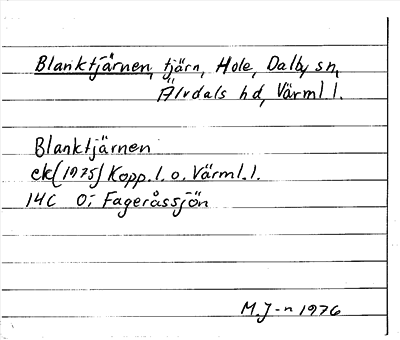 Blanktjärnen, tjärn, Hole, Dalby sn,
Älvdals hd, Värml. l.
Blanktjärnen
ek (1975) Kopp. l. o. Värml. l.
14C 0; Fageråssjön
M.J-n 1976